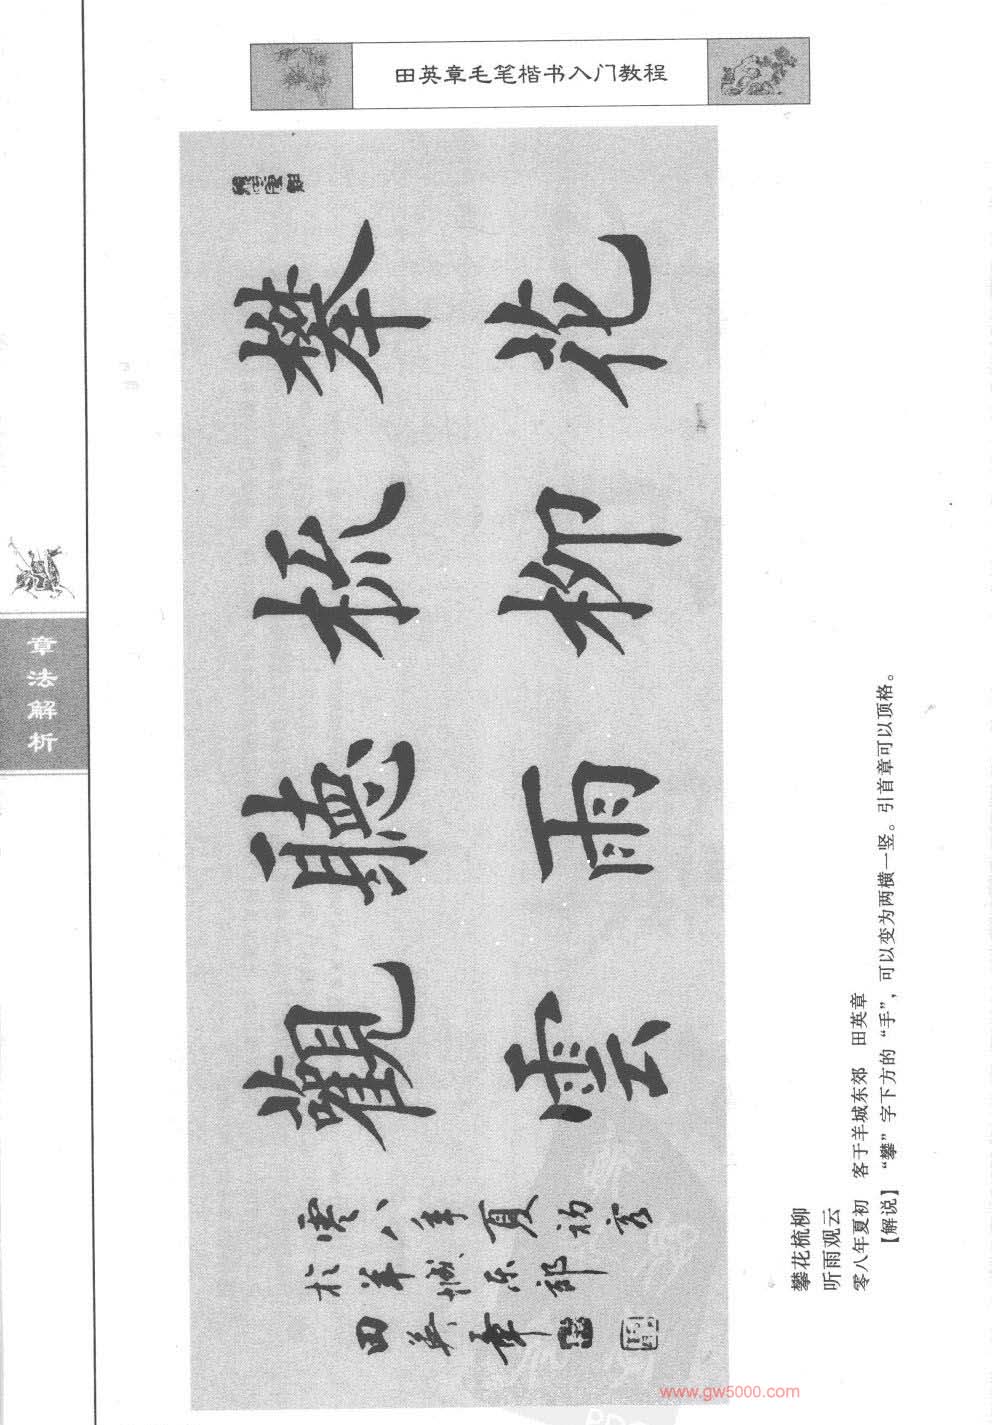 田英章毛笔楷书入门教程
章法解析
攀花
梳柳
聽雨
觀雲
零八年夏初客
於羊城东郊
田英章
攀花梳柳
听雨观云
零八年夏初 客于羊城东郊 田英章
【解说】“攀”字下方的“手”，可以变为两横一竖。引首章可以顶格。
www.gw5000.com